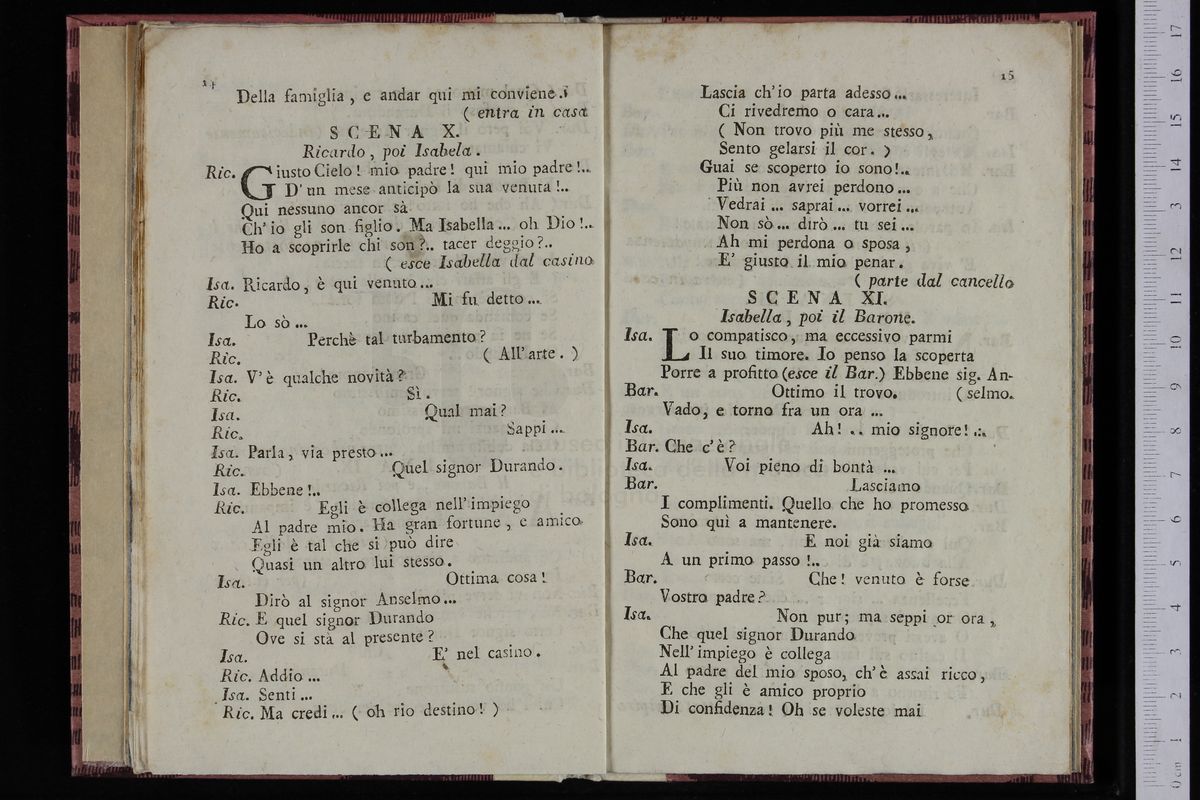 14
Della famiglia , e andar qui mi conviene.
( entra in casa
SCENA X.
Ricardo , poi Isabela .
Ric. Giusto Cielo ! mio padre ! qui mio padre !..
D' un mese anticipò la sua venuta !..
Qui nessuno ancor sà
Ch' io gli son figlio . Ma Isabella ... oh Dio !..
Ho a scoprirle chi son ?.. tacer deggio ?..
( esce Isabella dal casino
Isa. Ricardo , è qui venuto ...
Ric. Mi fu detto ...
Lo sò ...
Isa. Perchè tal turbamento ?
Ric. ( All' arte . )
Isa. V' è qualche novità ?
Ric. Sì .
Isa. Qual mai ?
Ric. Sappi ...
Isa. Parla , via presto ...
Ric. Quel signor Durando .
Isa. Ebbene !..
Ric. Egli è collega nell' impiego
Al padre mio . Ha gran fortune , e amico
Egli è tal che si può dire
Quasi un altro lui stesso .
Isa. Ottima cosa !
Dirò al signor Anselmo ...
Ric. E quel signor Durando
Ove si stà al presente ?
Isa. E' nel casino .
Ric. Addio ...
Isa. Senti ...
Ric. Ma credi ... ( oh rio destino ! )
15
Lascia ch' io parta adesso ...
Ci rivedremo o cara ...
( Non trovo più me stesso ,
Sento gelarsi il cor . )
Guai se scoperto io sono !..
Più non avrei perdono ...
Vedrai ... saprai ... vorrei ...
Non sò ... dirò ... tu sei ...
Ah mi perdona o sposa ,
E' giusto il mio penar .
( parte dal cancello
SCENA XI.
Isabella , poi il Barone.
Isa. Lo compatisco , ma eccessivo parmi
Il suo timore. Io penso la scoperta
Porre a profitto (esce il Bar.) Ebbene sig. An-
Bar. Ottimo il trovo. ( selmo.
Vado , e torno fra un ora ...
Isa. Ah ! .. mio signore ! ..
Bar. Che c' è ?
Isa. Voi pieno di bontà ...
Bar. Lasciamo
I complimenti. Quello che ho promesso
Sono quì a mantenere.
Isa. E noi già siamo
A un primo passo !..
Bar. Che ! venuto è forse
Vostro padre ?
Isa. Non pur ; ma seppi or ora ,
Che quel signor Durando
Nell' impiego è collega
Al padre del mio sposo, ch' è assai ricco ,
E che gli è amico proprio
Di confidenza ! Oh se voleste mai
0 cm 1 2 3 4 5 6 7 8 9 10 11 12 13 14 15 16 17